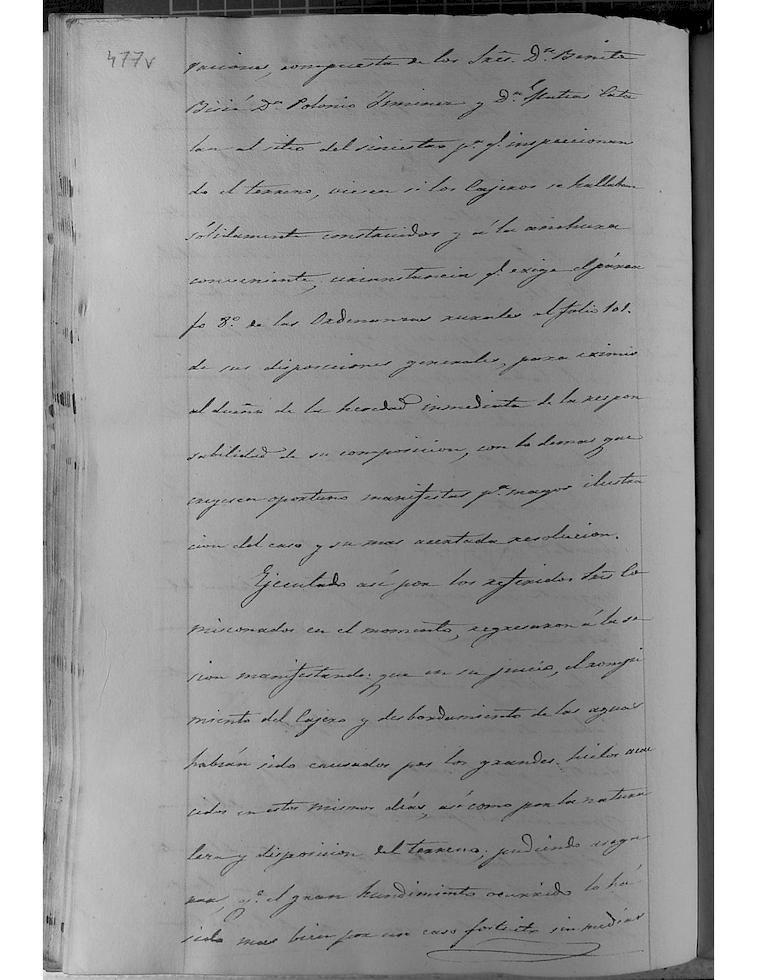 477v
raciones, compuesta de los Sres. Dn. Benito
Dn. Polonio Jimenez y Dn. Mateo Cata
lan al sitio del siniestro pa. q. inspeccionan
do el terreno, viesen si los Cajeros se hallaban
sólidamente construidos y á la anchura
conveniente, circunstancia q. exige el párra
fo 3.º de las Ordenanzas rurales al folio 101.
de sus disposiciones generales, para eximir
al dueño de la heredad inmediata de la respon
sabilidad de su composicion, con lo demas que
creyesen oportuno manifestar pa. mayor ilustra
cion del caso y su mas acertada resolucion.
Ejecutado así por los referidos Sres Co
misionados en el momento, regresaron á la se
sion manifestando: que en su juicio, el rompi
miento del Cajero y desbordamiento de las aguas
habían sido causados por los grandes hielos acae
cidos en estos mismos días, así como por la natura
leza y disposicion del terreno; pudiendo asegu
rar, q.e el gran hundimiento ocurrido lo há
sido mas bien por un caso fortuito sin mediar